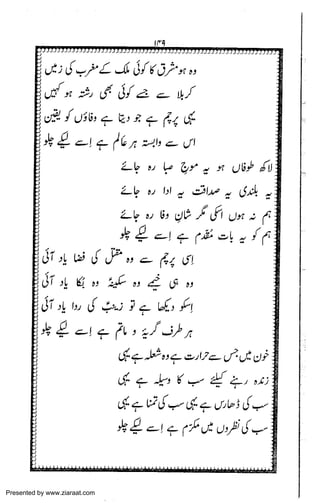 ۱۳۹
وہ ہو مشرق کا کوئی ملک کے مغرب کی زمیں
کربلا سے جسے کوئی بھی رشتہ ہو کہیں
یہی پرچم ہے جو دیتا ہے وفاؤں کو یقین
اس سے وابستہ ہر عالم ہے اسے لیکے چلو
لاکھ طوفاں ہو یہ موجِ صبا رہ جائے
یہ بلندی یہ صداقت یہ ادا رہ جائے
ہم نہ ہوں اسکی مگر شانِ وفا رہ جائے
ہم کو یہ بات مُقدم ہے اسے لیکے چلو
اِسی پرچم سے وہ مقتل کی فضا یاد آئی
وہ ہی خیمے وہ سکینہؑ وہ بُکا یاد آئی
اِسکو دیکھا ہے تو زینبؑ کی ردا یاد آئی
ہر طرف گریۂ و ماتم ہے اِسے لیکے چلو
خون میں جس سے حرارت ہے وہ شعلہ ہے یہی
زندہ رہنے کیلئے سب کا وسیلہ ہے یہی
سب کی ڈھارس ہے یہی سب کی تمنا ہے یہی
سب کی نظروں میں مکرّم ہے اسے لیکے چلو
Presented by www.ziaraat.com